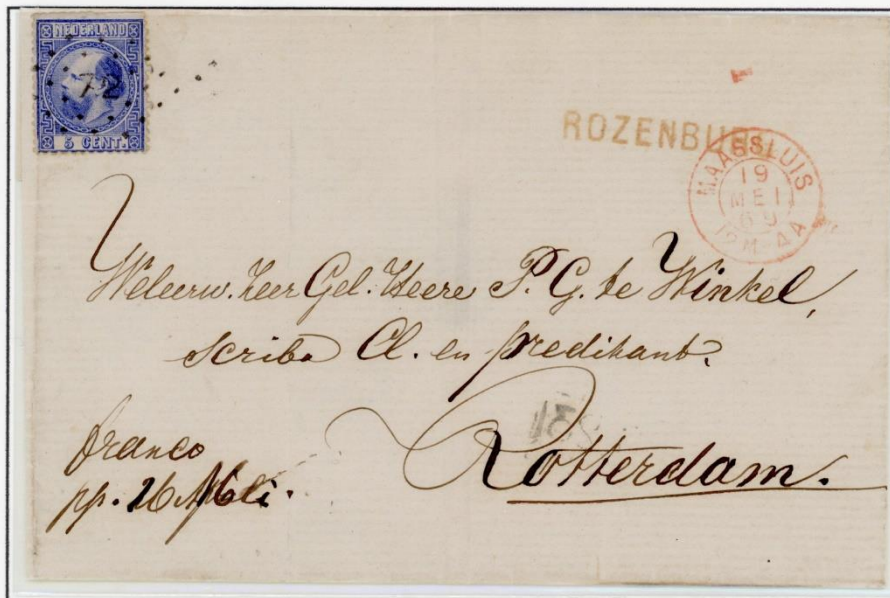 NEDERLAND
72
5 CENT.
ROZENBURG
MAASSLUIS
19
MEI
69
12M-4A
Weleerw. Zeer Gel. Heere P. G. te Winkel,
scriba Cl. en predikant.
Rotterdam.
franco
pp.